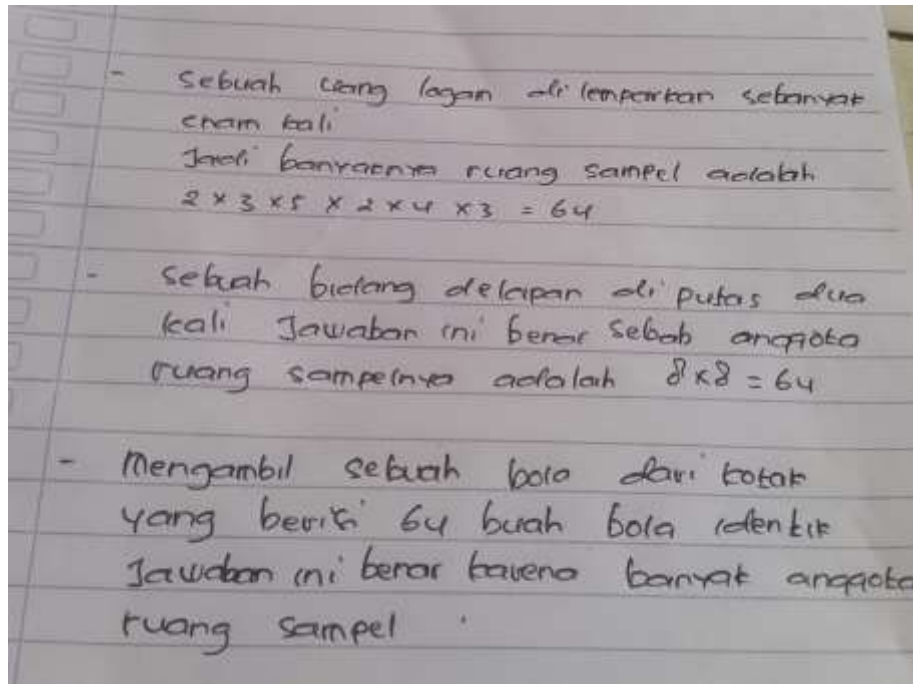 - Sebuah uang logam di lemparkan sebanyak
enam kali
Jadi banyaknya ruang sampel adalah
2 x 3 x 5 x 2 x 4 x 3 = 64
- Sebuah bidang delapan di putas dua
kali Jawaban ini benar Sebab anggota
ruang sampelnya adalah 8x8 = 64
- Mengambil sebuah bola dari kotak
yang berisi 64 buah bola identik
Jawaban ini benar karena banyak anggota
ruang sampel .